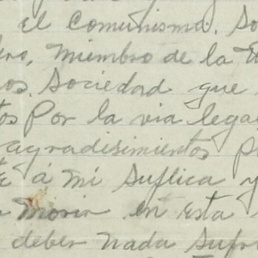 el Comunismo. So
ro, Miembro de la
os. Sociedad que
tos Por la via lega
agradisimientos p
E á mi Suflica y
Morir en esta
deber Nada Sufr